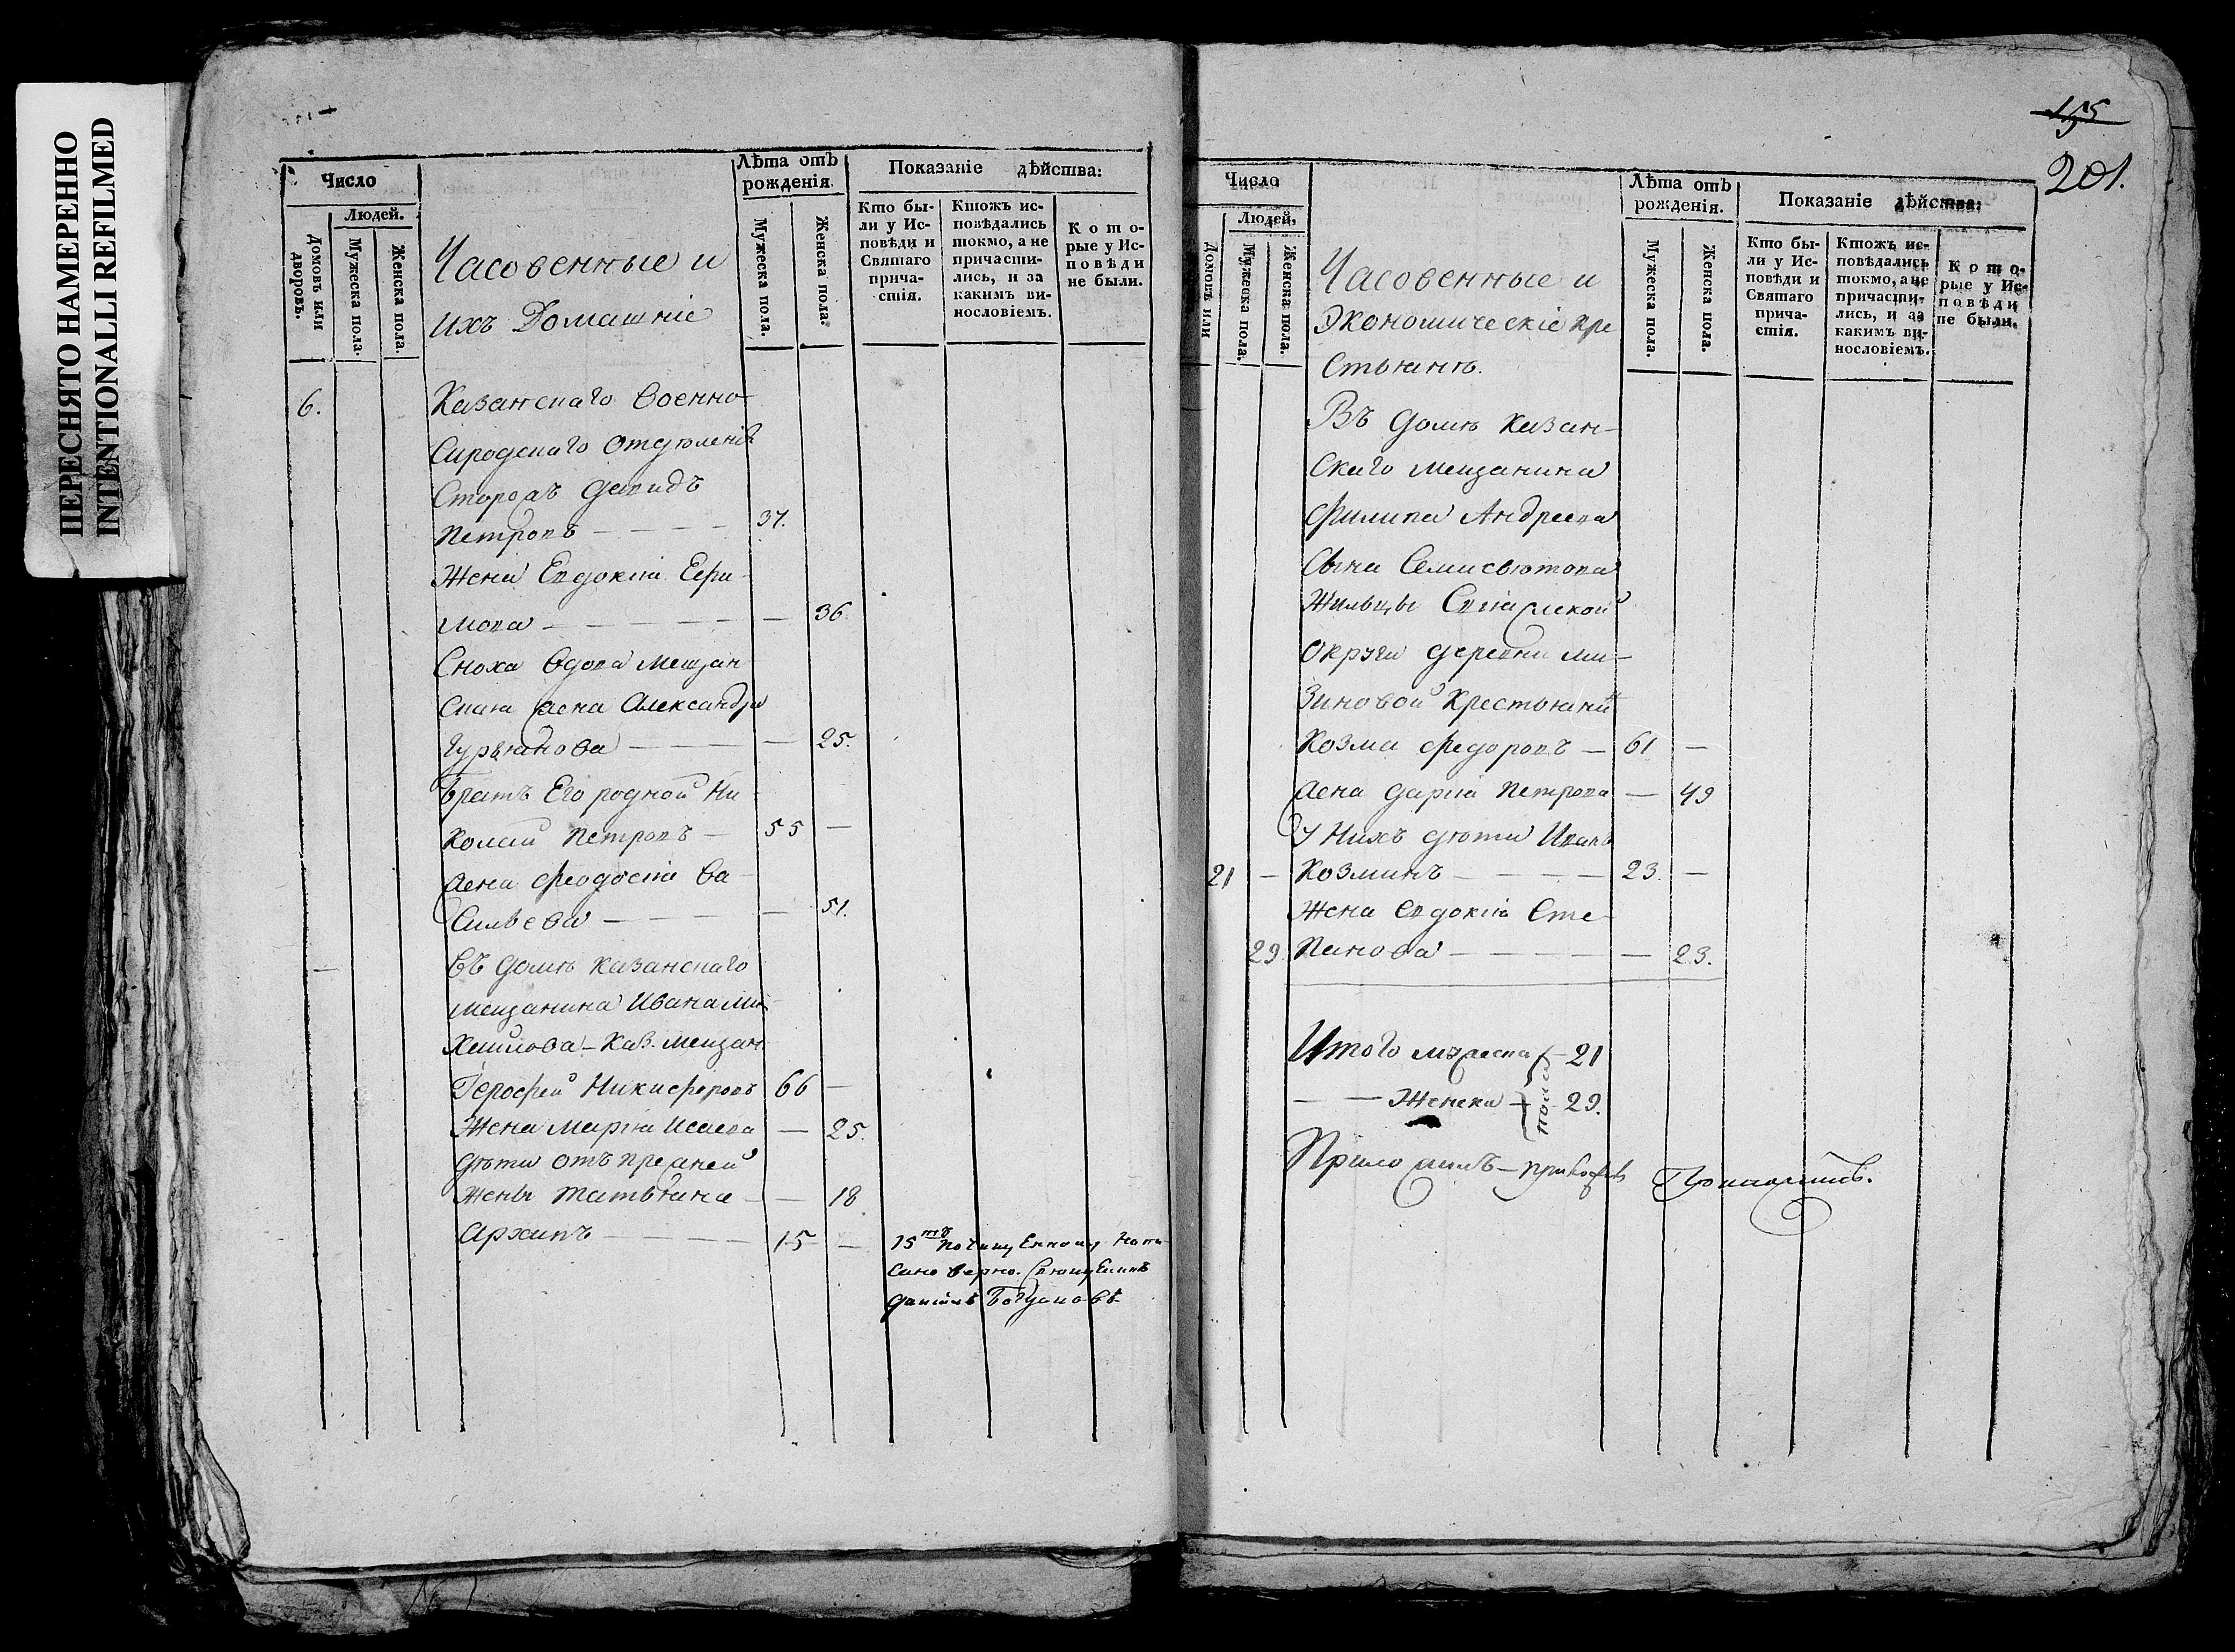 ПЕРЕСНЯТО НАМЕРЕННО
INTENTIONALLI REFILMED
Число
Людей.
Домовъ или дворовъ.
Мужеска пола.
Женска пола.
Часовенные и
ихъ Домашніе
Лѣта отъ рожденія.
Мужеска пола.
Женска пола.
Показаніе дѣйства:
Кто были у Исповѣди и Святаго причастія.
Ктожъ исповѣдались токмо, а не причастились, и за какимъ винословіемъ.
Которые у Исповѣди не были.
6. Казанскаго Военно
Сиродскаго отдѣленія
Сторожъ давидъ
Петровъ — 37.
Жена Евдокія Ефи
мова — 36.
Сноха вдова мещан
Скаia жена Александра
Гурьянова — 25.
братъ Его родной Ни
колай Петровъ — 55 —
жена феодосія Ва
сильева — 51.
— въ домѣ казанскаго
мещанина Ивана Ми
хаилова — Каз. мещан.
Герофей Никифоровъ 66 —
Жена Марія Исаева — 25.
дѣти отъ прежней
жены татьяна — 18
Архипъ — 15 —
15
Сано верно. Священникъ
201.
Число
Людей.
Домовъ или
Мужеска пола.
Женска пола.
Часовенные и
Экономическіе кре
стьянъ.
Лѣта отъ рожденія.
Мужеска пола.
Женска пола.
Показаніе дѣйства:
Кто были у Исповѣди и Святаго причастія.
Ктожъ исповѣдались токмо, а не причастились, и за какимъ винословіемъ.
Которые у Исповѣди не были.
Въ домѣ казан-
скаго мещанина
филипа Андреева
сына Семисвютова
жильцы Свіяжской
округи деревни ми-
зиновой крестьянинъ
Козма федоровъ — 61 —
жена дарія Петрова — 49
У нихъ дѣти Иванъ
21 — Козминъ — 23. —
жена Евдокія Сте
29 панова — 23.
Итого мужеска — 21
Женска — 29.
пола